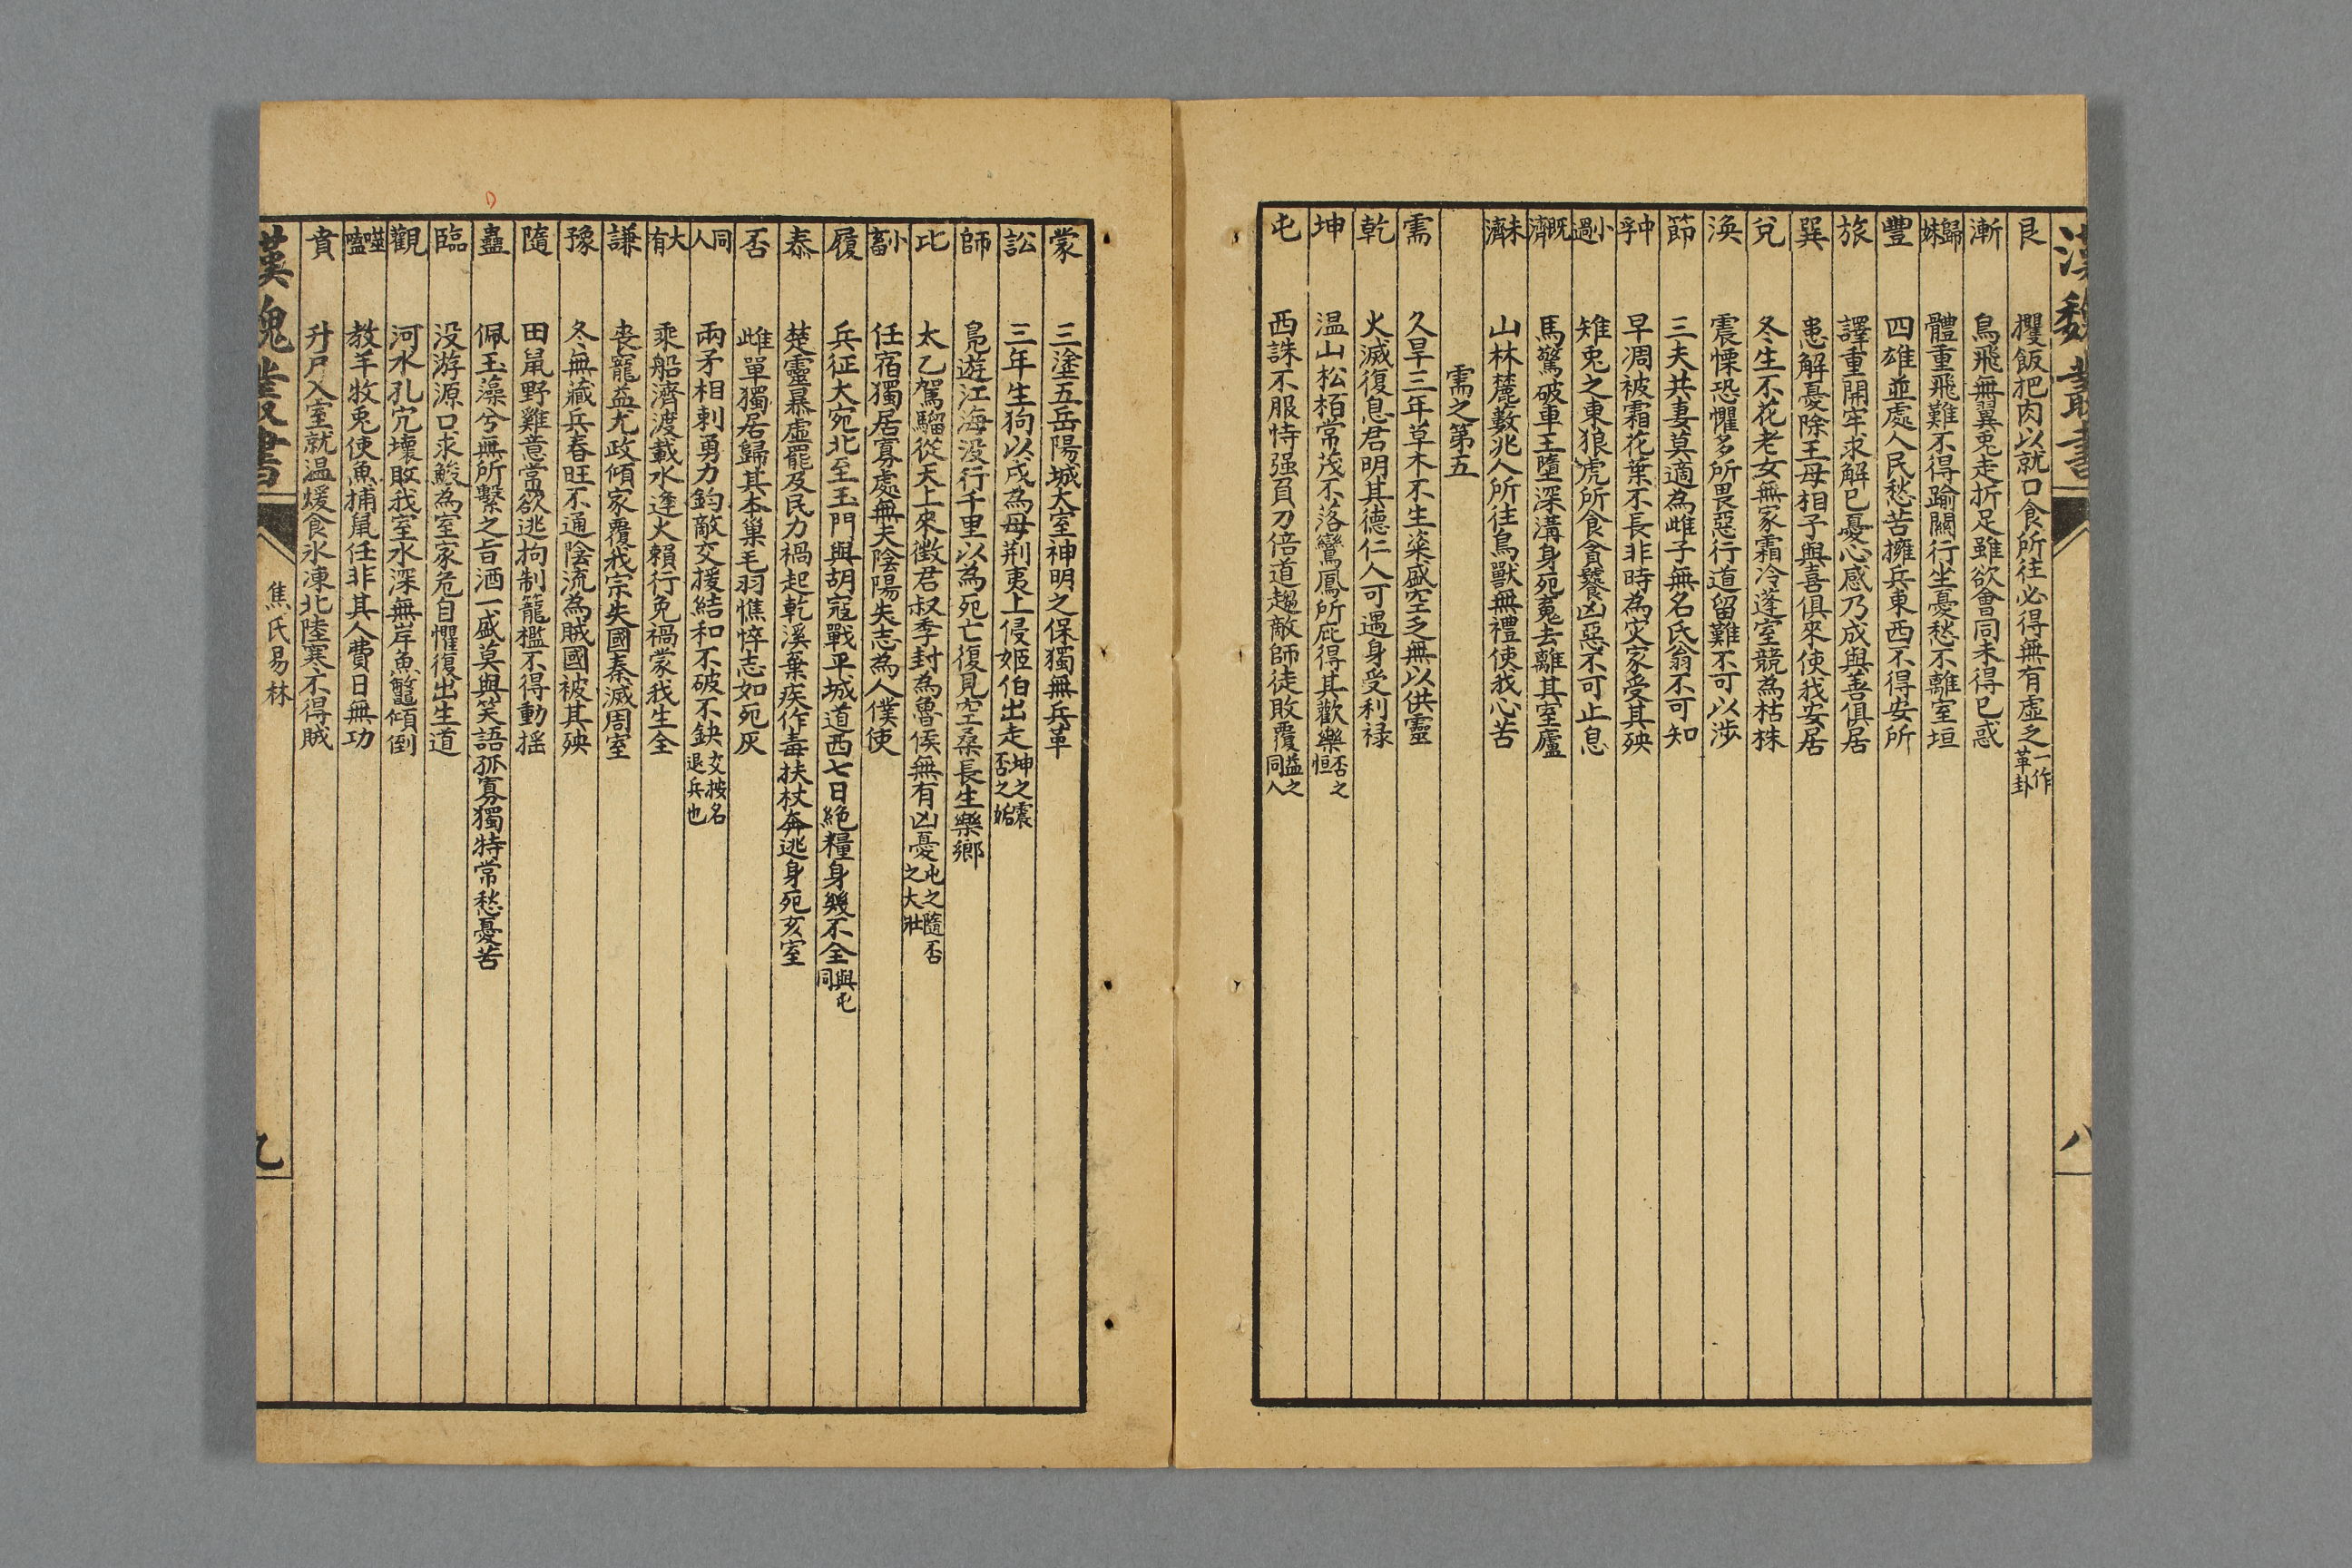 漢魏叢書
八
艮 攫飯把肉以就口食所往必得無有虛乏一作革卦
漸 鳥飛無翼兎走折足雖欲會同未得已惑
歸妹 體重飛難不得踰關行坐憂愁不離室垣
豐 四雄並處人民愁苦擁兵東西不得安所
旅 譯重開牢求解已憂心感乃成與善俱居
巽 患解憂除王母相予與喜俱來使我安居
兌 冬生不花老女無家霜冷蓬室競為枯株
渙 震慄恐懼多所畏惡行道留難不可以涉
節 三夫共妻莫適為雌子無名氏翁不可知
中孚 早凋被霜花葉不長非時為灾家受其殃
小過 雉兎之東狼虎所食貪饕凶惡不可止息
既濟 馬驚破車王墮深溝身死䰟去離其室廬
未濟 山林麓藪兆人所往鳥獸無禮使我心苦
需之第五
需 久旱三年草木不生粢盛空乏無以供靈
乾 火滅復息君明其德仁人可遇身受利禄
坤 温山松栢常茂不落鸞鳳所庇得其歡樂否之恒
屯 西誅不服恃强負力倍道趨敵師徒敗覆益之同人
蒙 三塗五岳陽城大室神明之保獨無兵革
訟 三年生狗以戌為母荆夷上侵姬伯出走坤之震否之姤
師 鳬遊江海没行千里以為死亡復見空桑長生樂鄉
比 太乙駕騮從天上來徵君叔季封為魯侯無有凶憂屯之隨否之大壯
小畜 任宿獨居寡處無夫陰陽失志為人僕使
履 兵征大宛北至玉門與胡寇戰平城道西七日絶糧身幾不全與屯同
泰 楚靈暴虐罷及民力禍起乾溪棄疾作毒扶杖奔逃身死亥室
否 雌單獨居歸其本巢毛羽憔悴志如死灰
同人 兩矛相刺勇力鈞敵交援結和不破不缺交按名退兵也
大有 乘船濟渡載水逢火賴行免禍蒙我生全
謙 喪寵益尤政傾家覆我宗失國秦滅周室
豫 冬無藏兵春旺不通陰流為賊國被其殃
隨 田鼠野雞意常欲逃拘制籠檻不得動揺
蠱 佩玉藻兮無所繫之旨酒一盛莫與笑語孤寡獨特常愁憂苦
臨 没游源口求鯼為室家危自懼復出生道
觀 河水孔穴壞敗我室水深無岸魚鼈傾倒
噬嗑 教羊牧兎使魚捕鼠任非其人費日無功
賁 升戶入室就温煖食氷凍北陸寒不得賊
漢魏叢書
焦氏易林
九